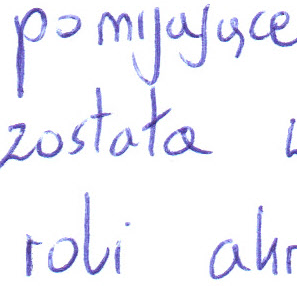 pomijające
została
roli